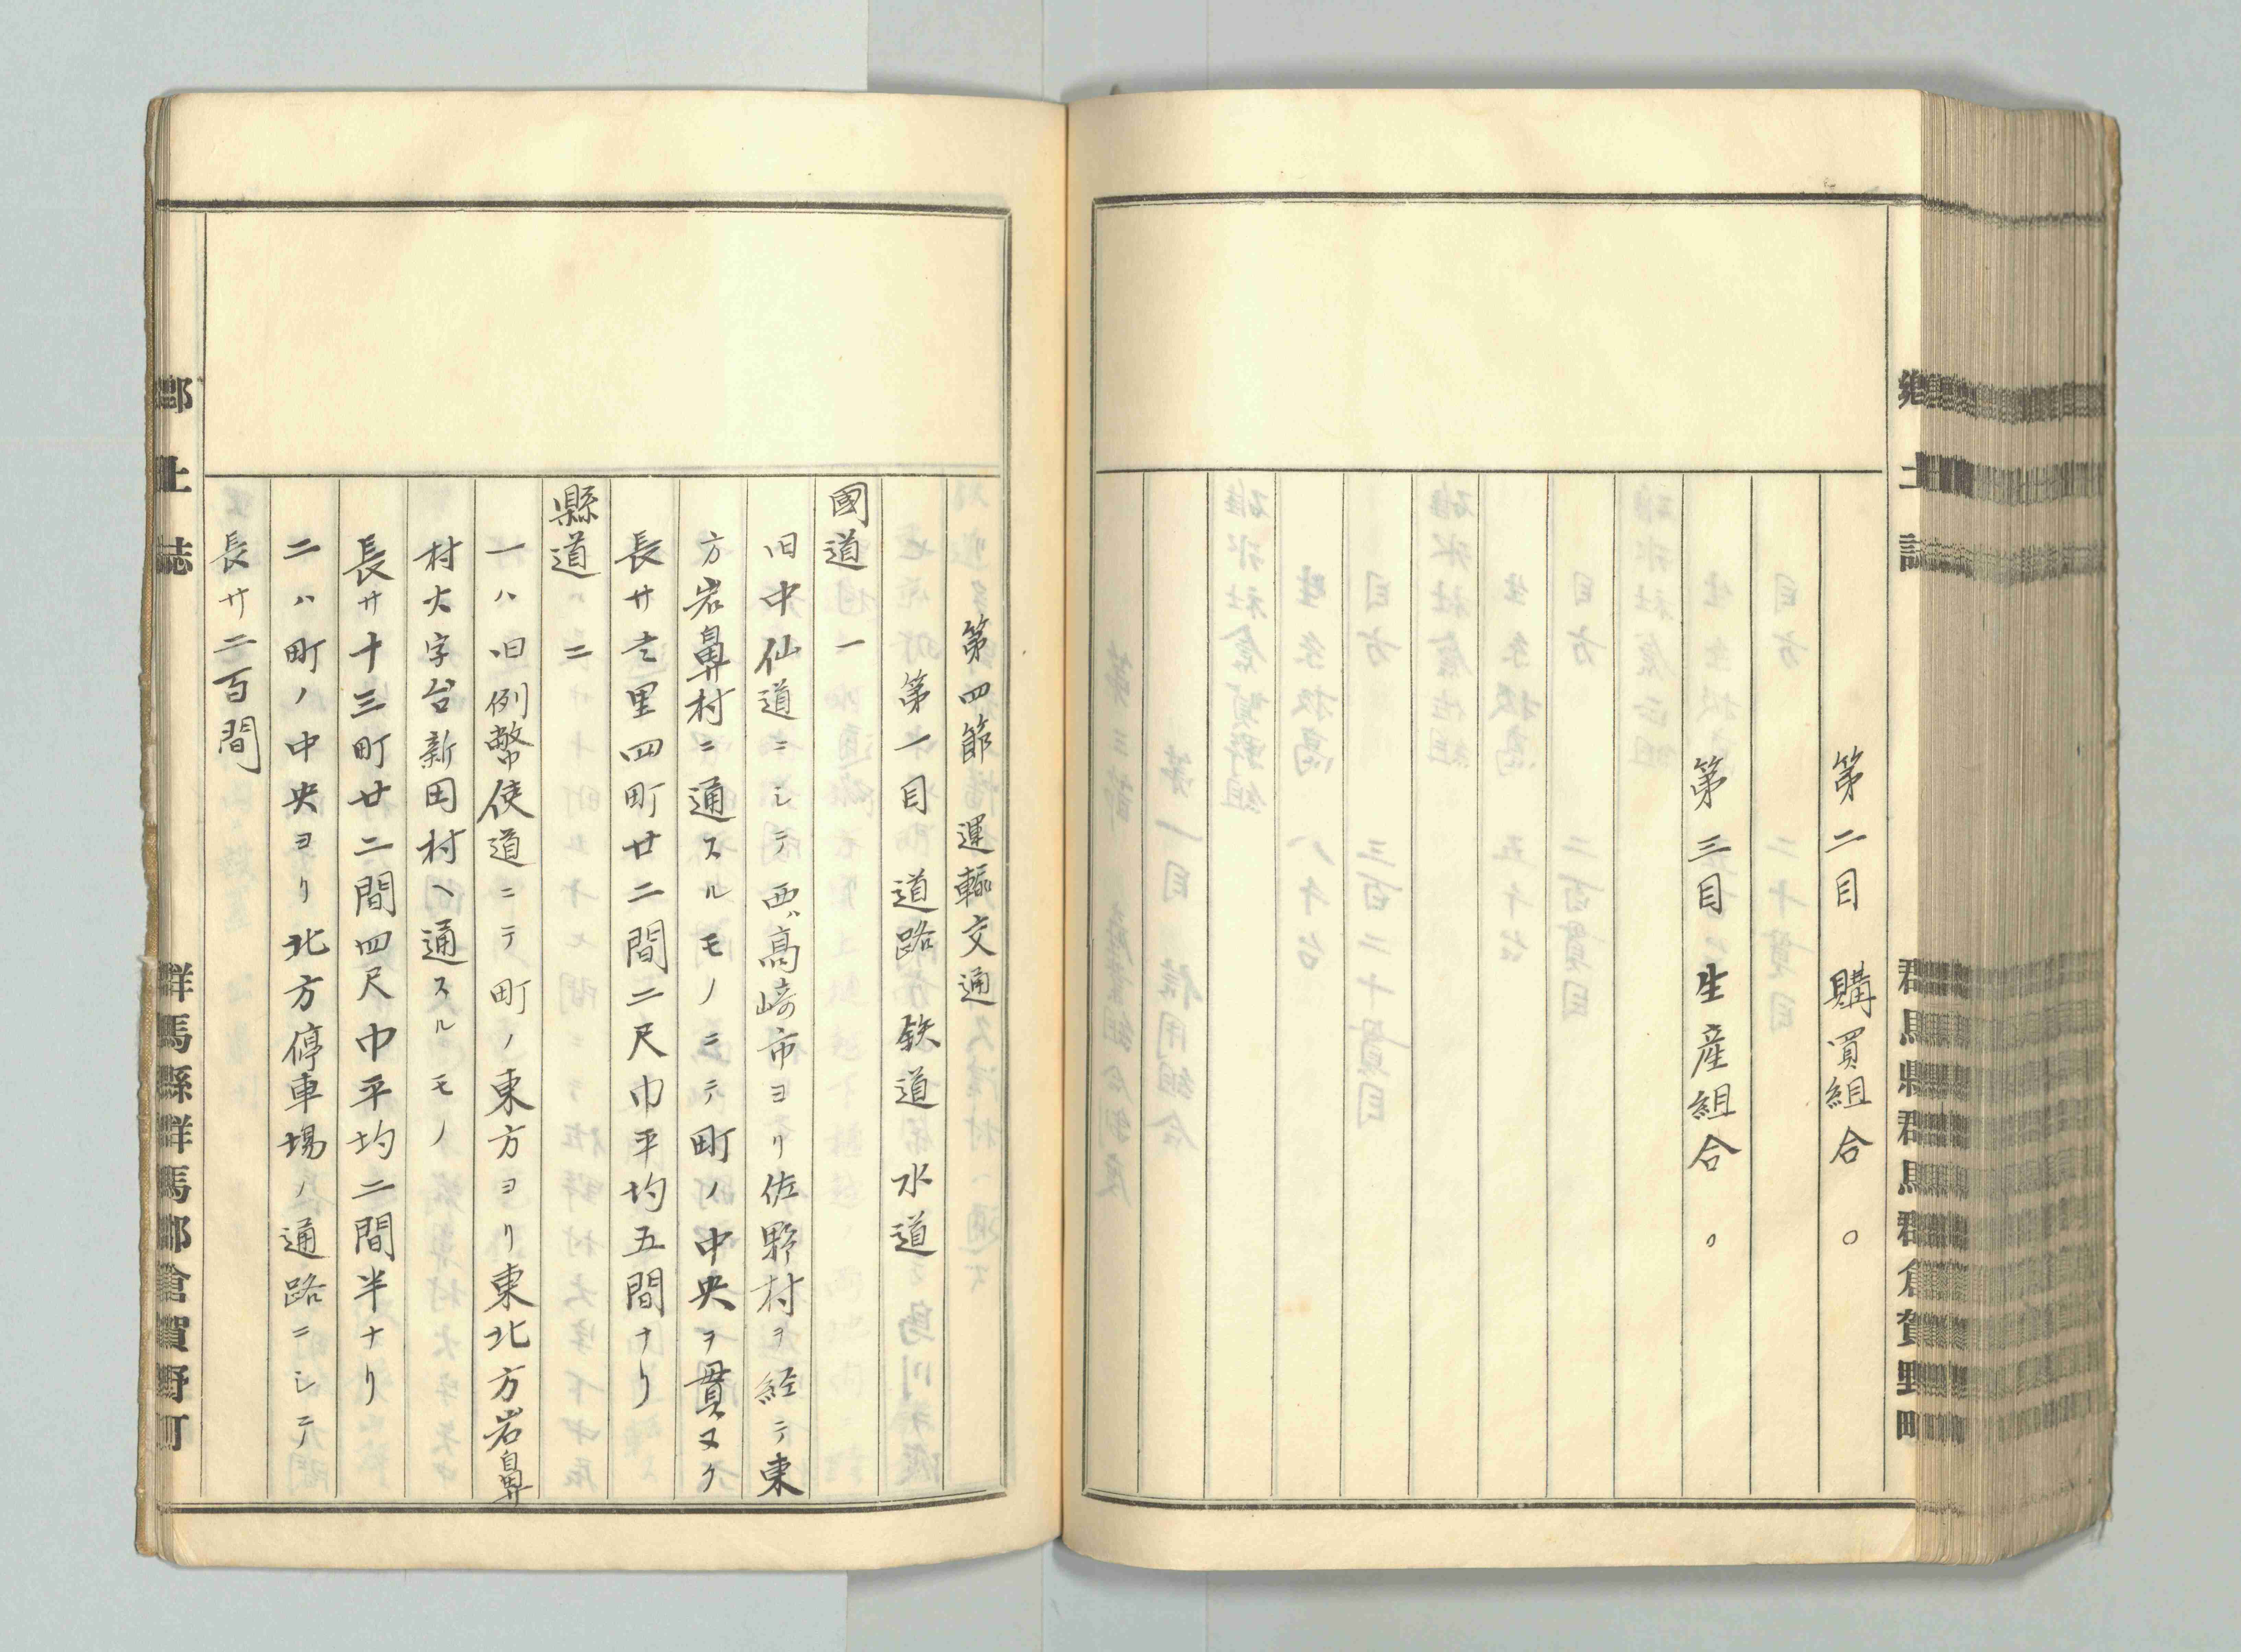 第二目　購買組合　。
第三目　生産組合　。
第四節　運輸交通
第一目　道路　鉄道　水道
國道　一
旧中仙道ニシテ西ハ高崎市ヨリ佐野村ヲ経テ東
方岩鼻村ニ通スルモノニテ町ノ中央ヲ貫ヌク
長サ壱里四町廿二間二尺巾平均五間ナリ
縣道　二
一ハ旧例幣使道ニテ町ノ東方ヨリ東北方岩鼻
村大字台新田村ヘ通スルモノ
長サ十三町廿二間四尺巾平均二間半ナリ
二ハ町ノ中央ヨリ北方停車場ノ通路ニシテ
長サ二百間
郷土誌
群馬縣群馬郡倉賀野町